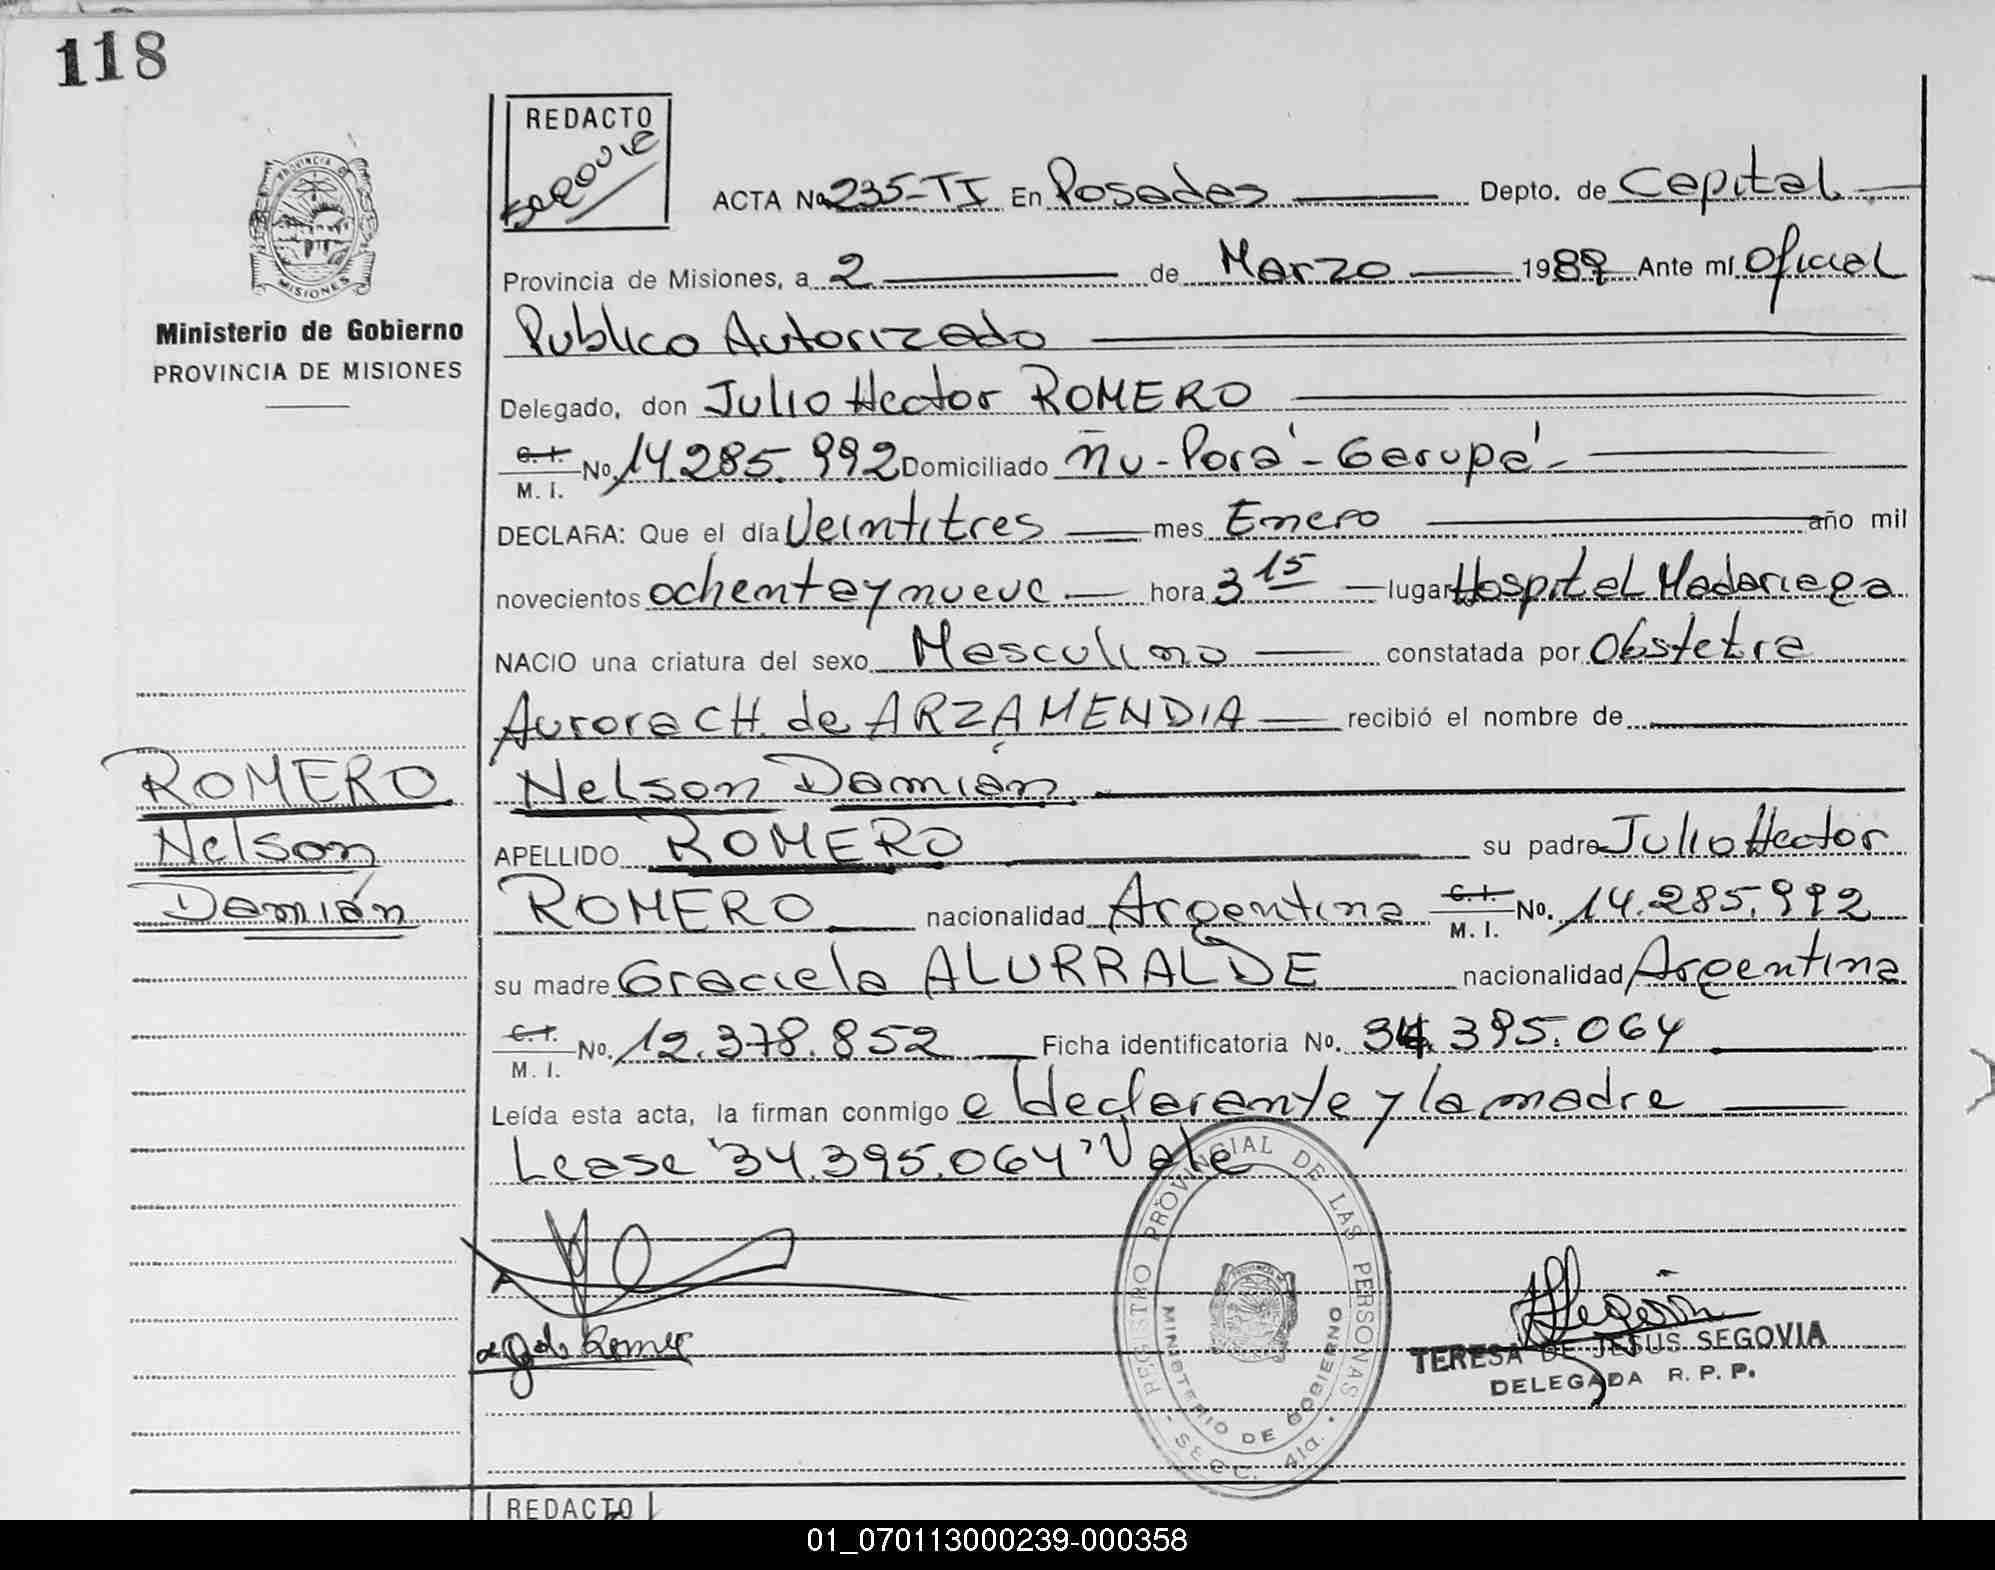 118
REDACTO
Segovia
ACTA No 235-TI En Posadas Depto. de Capital
PROVINCIA DE MISIONES
Provincia de Misiones, a 2 de Marzo 1989 Ante mí Oficial
Ministerio de Gobierno
PROVINCIA DE MISIONES
Publico Autorizado
Delegado, don Julio Hector ROMERO
C. I. M. I. No. 14.285.992 Domiciliado Ñu-Porá - Garupá -
DECLARA: Que el día Veintitres mes Enero año mil
novecientos ochenta y nueve hora 3 15 lugar Hospital Madariaga
NACIO una criatura del sexo Masculino constatada por Obstetra
Aurora CH. de ARZAMENDIA recibió el nombre de
Nelson Damián
ROMERO
Nelson
Damián
APELLIDO ROMERO su padre Julio Hector
ROMERO nacionalidad Argentina C. I. M. I. No. 14.285.992
su madre Graciela ALURRALDE nacionalidad Argentina
C. I. M. I. No. 12.378.852 Ficha identificatoria No. 34.395.064
Leída esta acta, la firman conmigo el declarante y la madre
Lease "34.395.064" Vale
REGISTRO PROVINCIAL DE LAS PERSONAS
MINISTERIO DE GOBIERNO
SECC. 4ta.
de Romero
TERESA DE JESUS SEGOVIA
DELEGADA R. P. P.
REDACTO
01_070113000239-000358